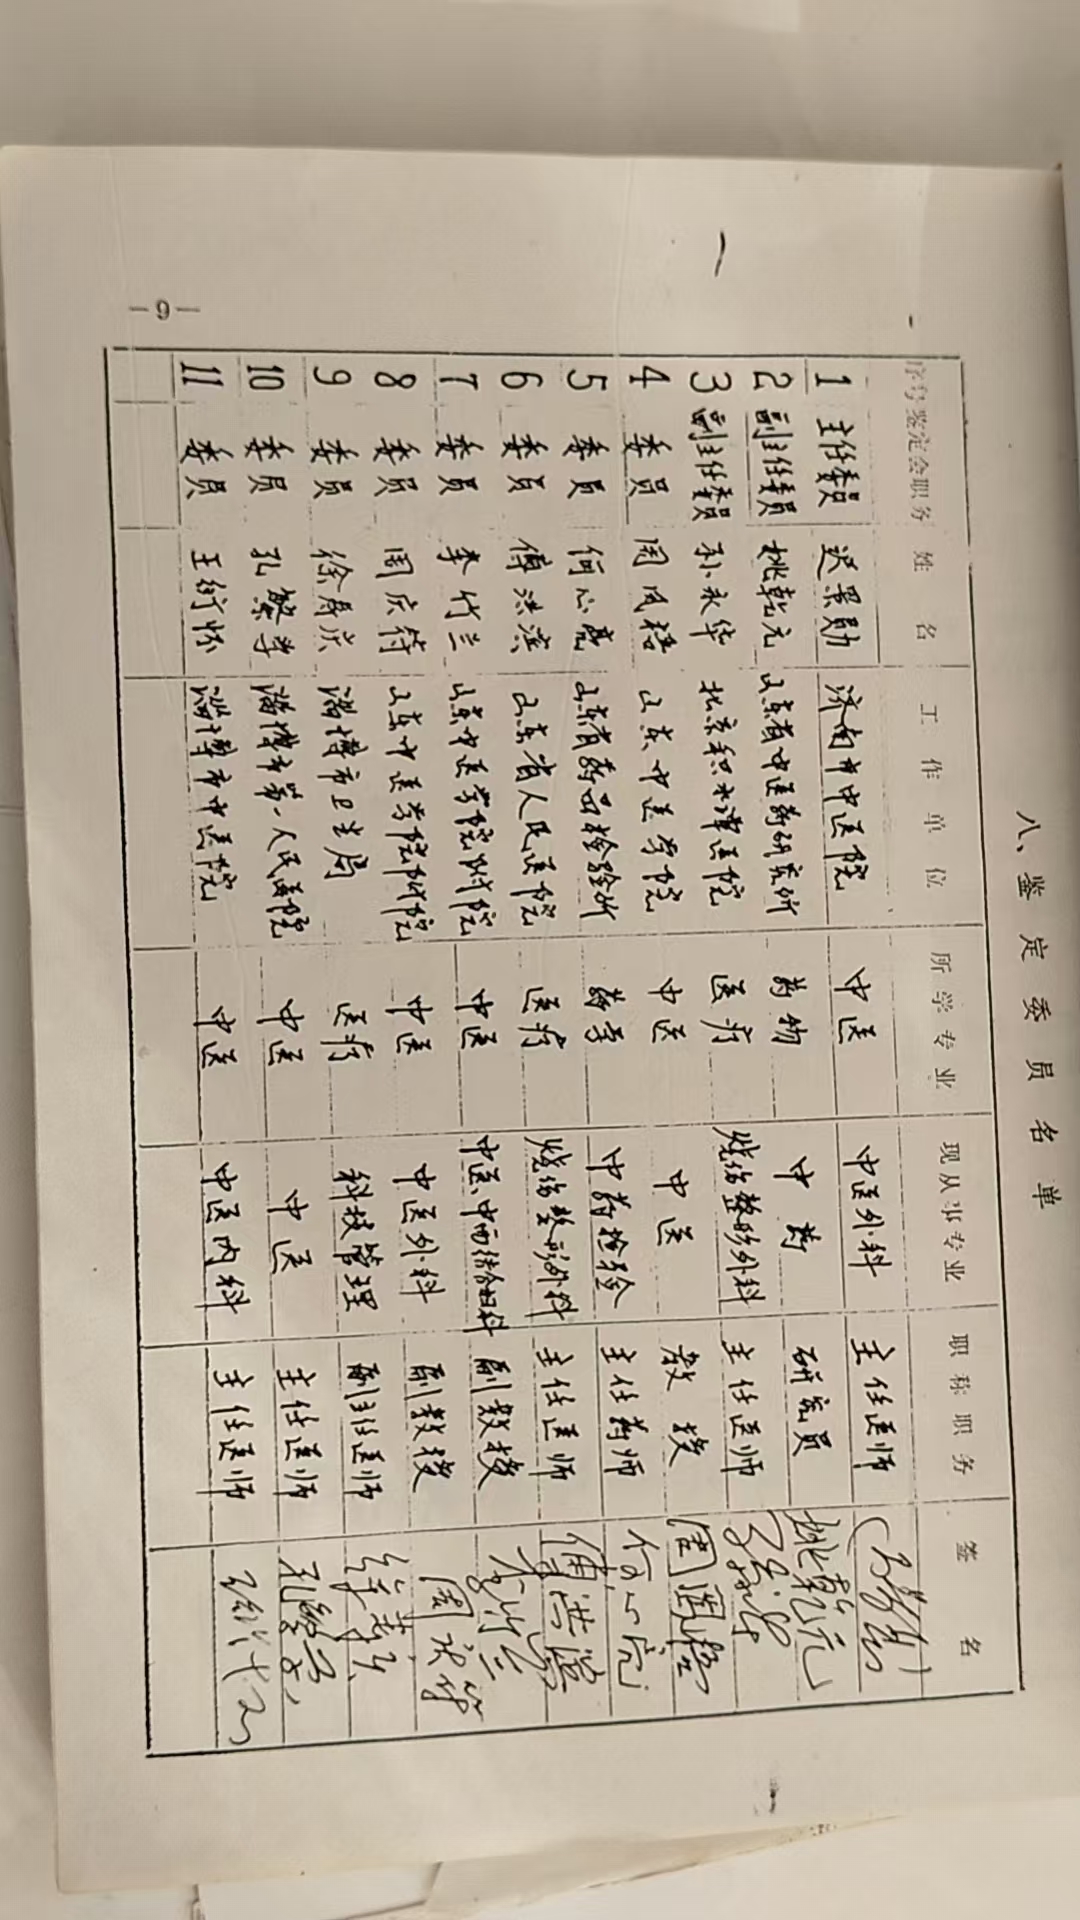 八、鉴定委员名单
序号 鉴定会职务 姓名 工作单位 所学专业 现从事专业 职称职务 签名
1 主任委员 迟景勋 济南市中医院 中医 中医外科 主任医师
2 副主任委员 姚乾元 山东省中医药研究所 药物 中药 研究员 姚乾元
3 副主任委员 孙永华 北京积水潭医院 医疗 烧伤整形外科 主任医师 孙永华
4 委员 周凤梧 山东中医学院 中医 中医 教授 周凤梧
5 委员 何心亮 山东省药品检验所 药学 中药检验 主任药师 何心亮
6 委员 傅洪滨 山东省人民医院 医疗 烧伤整形外科 主任医师 傅洪滨
7 委员 李竹兰 山东中医学院附院 中医 中医、中西结合妇科 副教授 李竹兰
8 委员 周庆符 山东中医学院附院 中医 中医外科 副教授 周庆符
9 委员 徐寿庆 淄博市卫生局 医疗 科技管理 副主任医师
10 委员 孔繁学 淄博市第一人民医院 中医 中医 主任医师 孔繁学
11 委员 王衍怀 淄博市中医院 中医 中医内科 主任医师
—9—